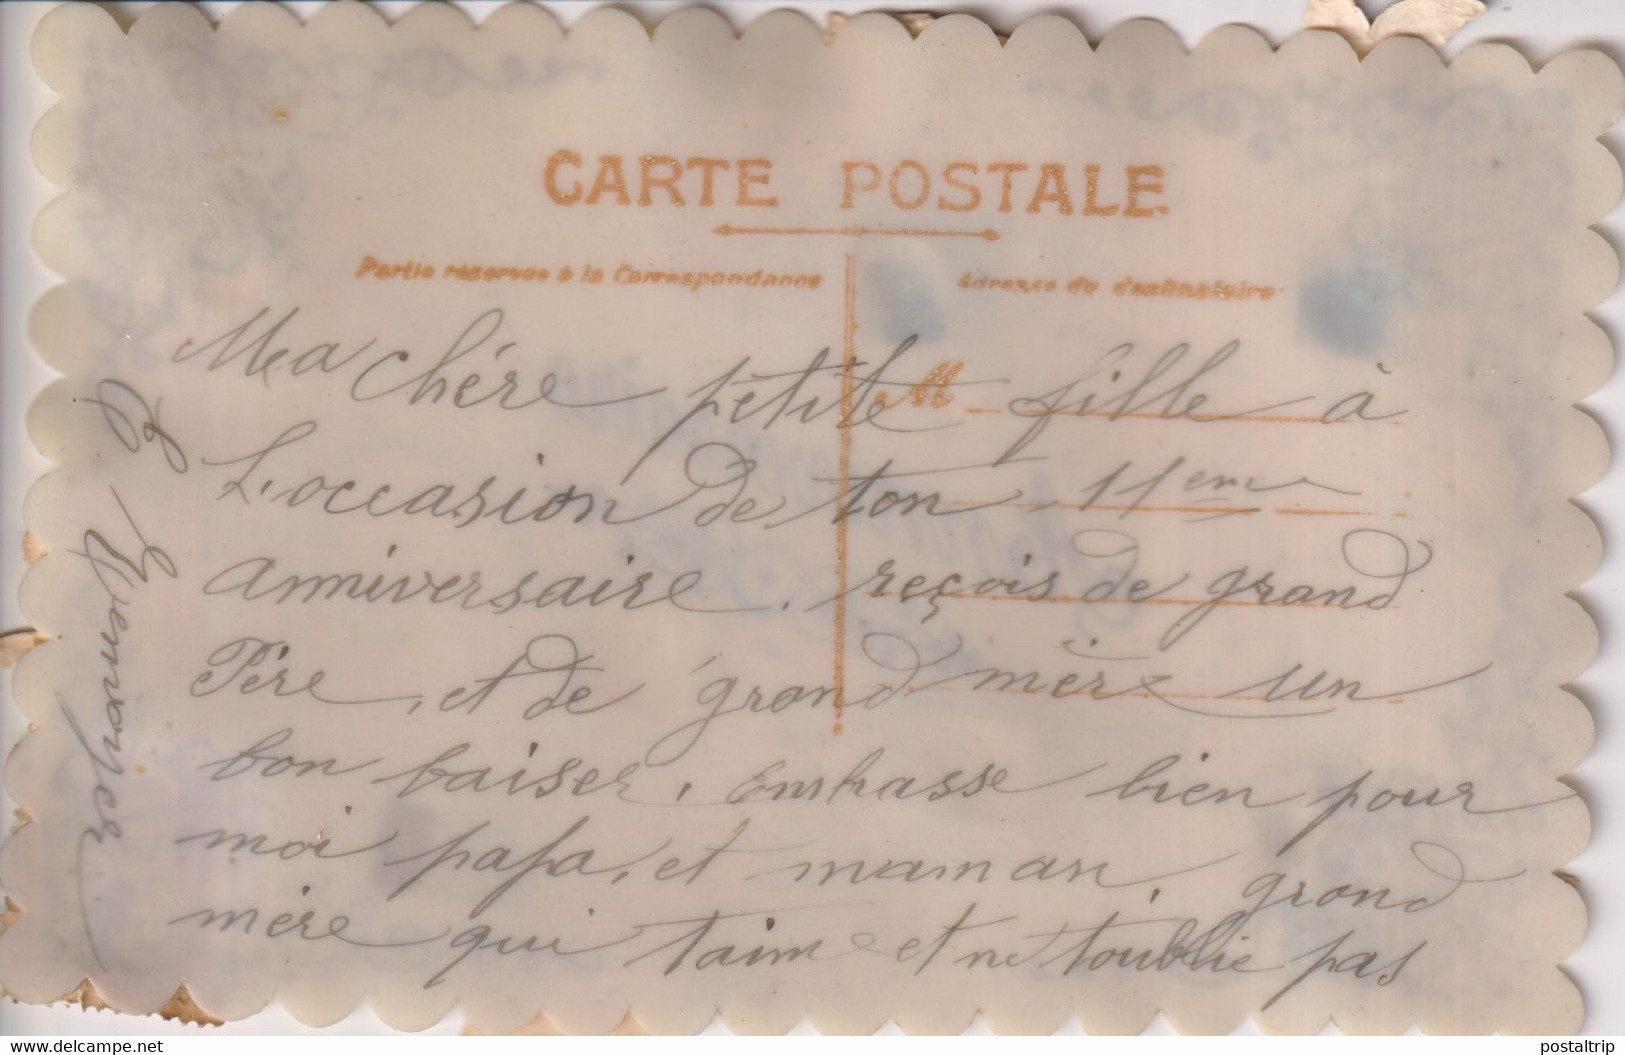 CARTE POSTALE
Partie réservée à la Correspondance
Adresse du destinataire
M
Ma Chère petite fille à
L'occasion de ton 11eme
anniversaire. reçois de grand
Père, et de grand mère un
bon baiser, Embrasse bien pour
moi papa, et maman, grand
mère qui taime et ne toublie pas
www.delcampe.net
postaltrip